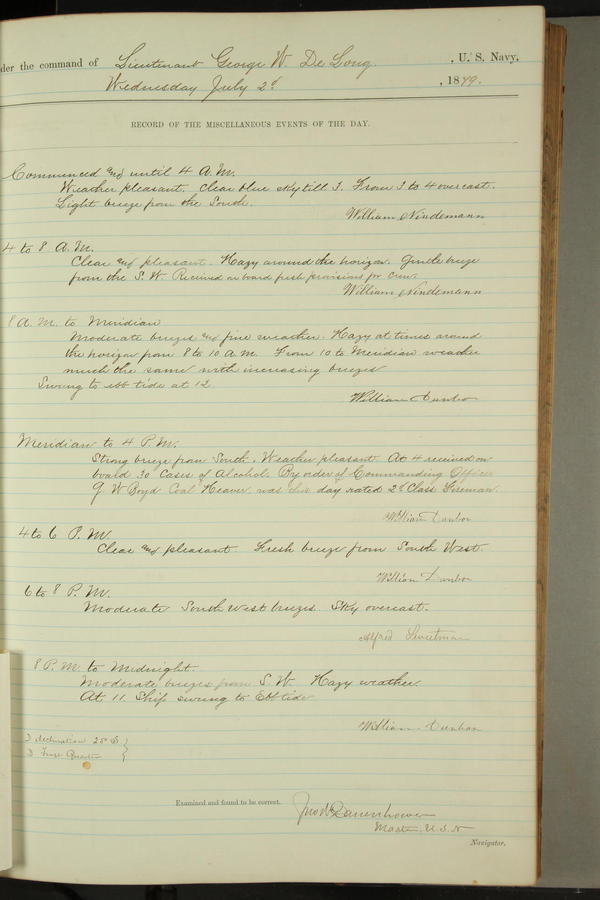 der the command of Lieutenant George W. De Long, U.S. Navy,
Wednesday July 2d, 1879.
RECORD OF THE MISCELLANEOUS EVENTS OF THE DAY.
Commenced and until 4 A.M.
Weather pleasant. Clear blue sky till 3. From 3 to 4 overcast.
Light breeze from the South.
William Nindemann
4 to 8 A.M.
Clear and pleasant. Hazy around the horizon. Gentle breeze
from the S.W. Received on board fresh provisions for crew.
William Nindemann
8 A.M. to Meridian
Moderate breezes and fine weather. Hazy at times around
the horizon from 8 to 10 A.M. From 10 to Meridian weather
much the same with increasing breezes
Swung to ebb tide at 12.
William Dunbar
Meridian to 4 P.M.
Strong breeze from South. Weather pleasant. At 4 received on
board 30 Cases of Alcohol. By order of Commanding Officer
G W Boyd Coal Heaver was this day rated 2d Class Fireman.
William Dunbar
4 to 6 P.M.
Clear and pleasant. Fresh breeze from South West.
William Dunbar
6 to 8 P.M.
Moderate South west breezes. Sky overcast.
Alfred Sweetman
8 P.M. to Midnight.
Moderate breezes from S.W. Hazy weather
At 11. Ship swung to Ebb tide
William Dunbar
declination 25° S
First Quarter
Examined and found to be correct.
Jno W Danenhower
Master, U.S.N
Navigator.